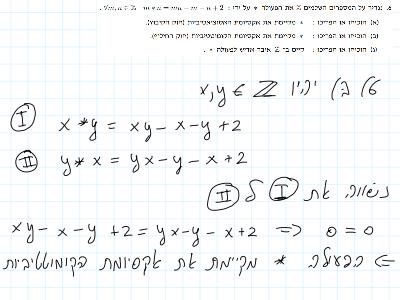 6. נגדיר על המספרים השלמים ℤ את הפעולה * על ידי : ∀m, n ∈ ℤ m * n = mn − m − n + 2.
(א) הוכיחו או הפריכו : * מקיימת את אקסיומת האסוציאטיביות (חוק הקיבוץ).
(ב) הוכיחו או הפריכו : * מקיימת את אקסיומת הקומוטטיביות (חוק החילוף).
(ג) הוכיחו או הפריכו : קיים בℤ איבר אדיש לפעולה * .
6) ב) יהיו x,y ∈ ℤ
I x * y = xy − x − y + 2
II y * x = yx − y − x + 2
נשווה את I ל II
xy − x − y + 2 = yx − y − x + 2 => 0 = 0
<= הפעולה * מקיימת את אקסיומת הקומוטטיביות